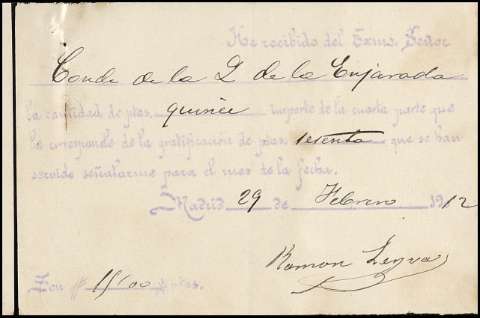 He recibido del Exmo. Señor
Conde de la P de la Enjarada
la cantidad de ptas. quince importe de la cuarta parte que
le corresponde de la gratificación de ptas. sesenta que se han
servido señalarme para el mes de la fecha.
Madrid 29 de Febrero 1912
Ramon Leyva
Son # 15'00 # ptas.